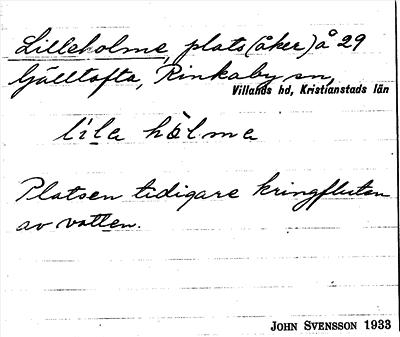 Lilleholme, plats (åker) å 29
Gälltofta, Rinkaby sn,
Villands hd, Kristianstads län
lila hòlma
Platsen tidigare kringfluten
av vatten.
JOHN SVENSSON 1933